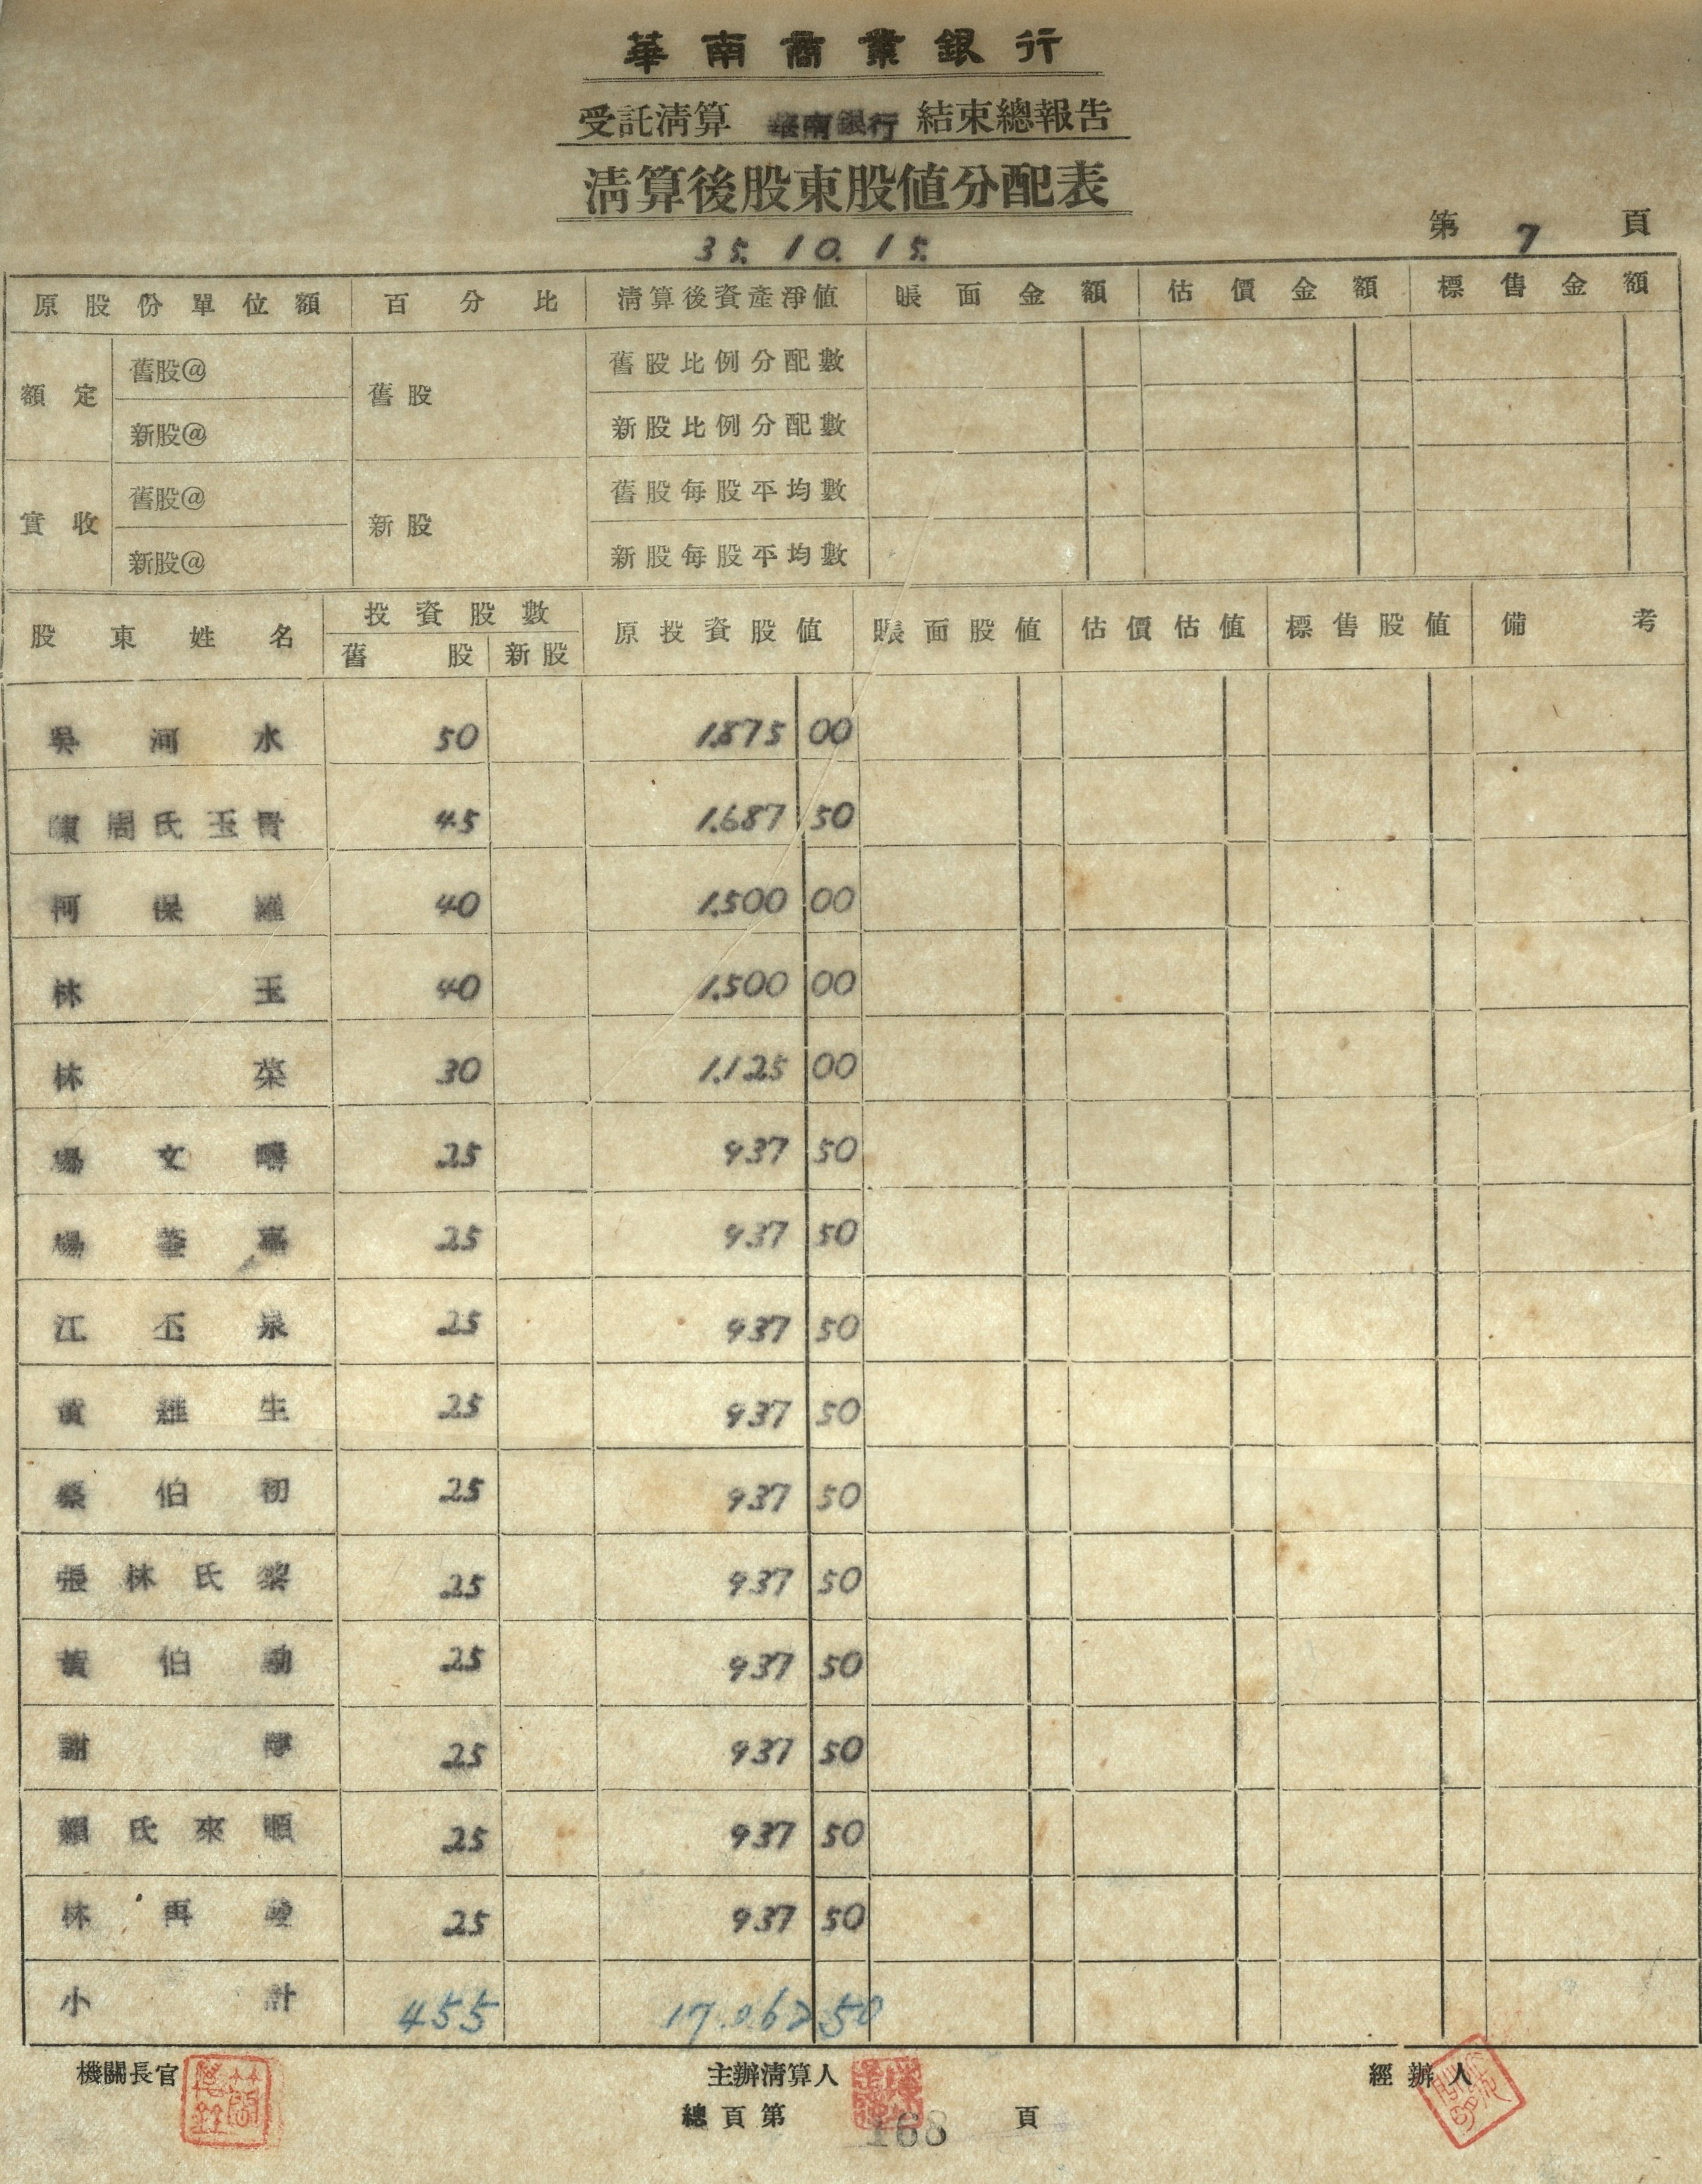 華南商業銀行
受託清算 華南銀行 結束總報告
清算後股東股值分配表
35. 10. 15.
第 7 頁
原股份單位額 百分比 清算後資產淨值 賬面金額 估價金額 標售金額
額定 舊股@ 舊股 舊股比例分配數
新股@ 新股比例分配數
實收 舊股@ 新股 舊股每股平均數
新股@ 新股每股平均數
股東姓名 投資股數 原投資股值 賬面股值 估價估值 標售股值 備考
舊股 新股
吳河水 50 1.875 00
陳周氏玉 45 1.687 50
柯保羅 40 1.500 00
林玉 40 1.500 00
林 30 1.125 00
楊文 25 937 50
楊 25 937 50
江丕泉 25 937 50
黃維生 25 937 50
蔡伯初 25 937 50
張林氏 25 937 50
黃伯 25 937 50
謝 25 937 50
賴氏來順 25 937 50
林再 25 937 50
小計 455 17.062 50
機關長官 主辦清算人 經辦人
總頁第 168 頁